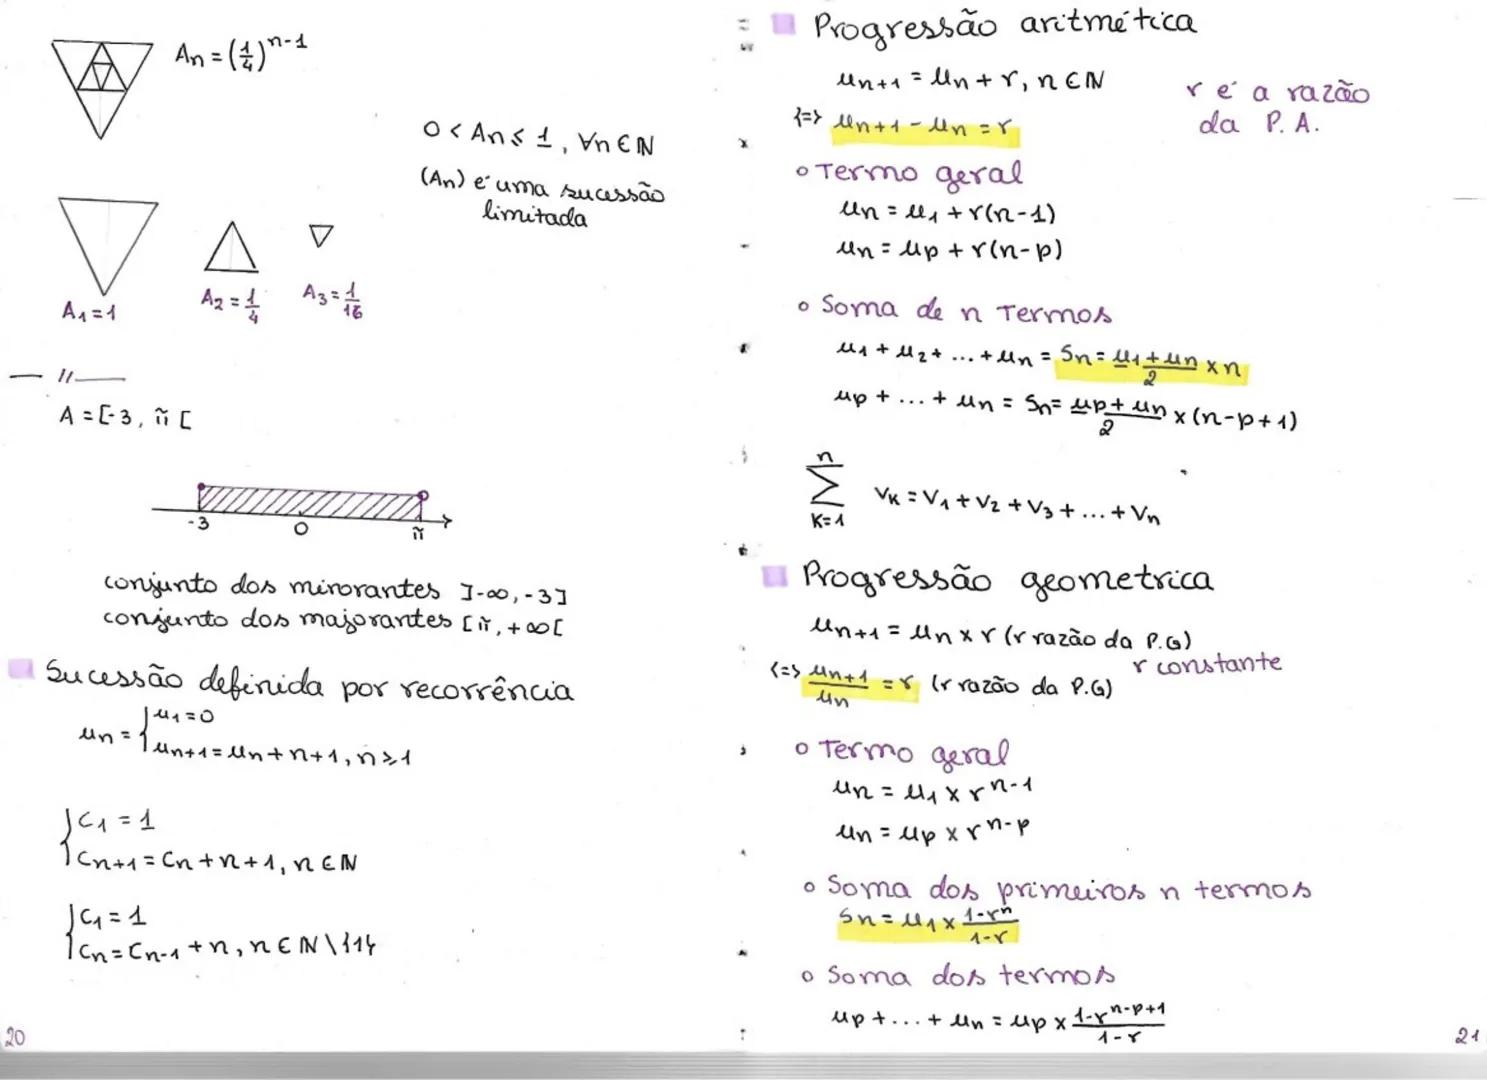 An = (1/4)^n-1
0 < An ≤ 1, ∀n ∈ ℕ
(An) é uma sucessão
limitada
A1 = 1
A2 = 1/4
A3 = 1/16
— 11 —
A = [-3, π [
-3 0 π
conjunto dos minorantes ]-∞, -3]
conjunto dos majorantes [π, +∞[
Sucessão definida por recorrência
un = { u1 = 0
un+1 = un + n + 1, n ≥ 1
{ C1 = 1
Cn+1 = Cn + n + 1, n ∈ ℕ
{ C1 = 1
Cn = Cn-1 + n, n ∈ ℕ \ {1}
20
Progressão aritmética
un+1 = un + r, n ∈ ℕ
r é a razão
da P. A.
<=> un+1 - un = r
o Termo geral
un = u1 + r(n-1)
un = up + r(n-p)
o Soma de n Termos
u1 + u2 + ... + un = Sn = (u1 + un)/2 x n
up + ... + un = Sn = (up + un)/2 x (n-p+1)
n
∑ VK = V1 + V2 + V3 + ... + Vn
K=1
Progressão geometrica
un+1 = un x r (r razão da P.G)
r constante
<=> un+1/un = r (r razão da P.G)
o Termo geral
un = u1 x r^n-1
un = up x r^n-p
o Soma dos primeiros n termos
Sn = u1 x (1-r^n)/(1-r)
o Soma dos termos
up + ... + un = up x (1-r^n-p+1)/(1-r)
21